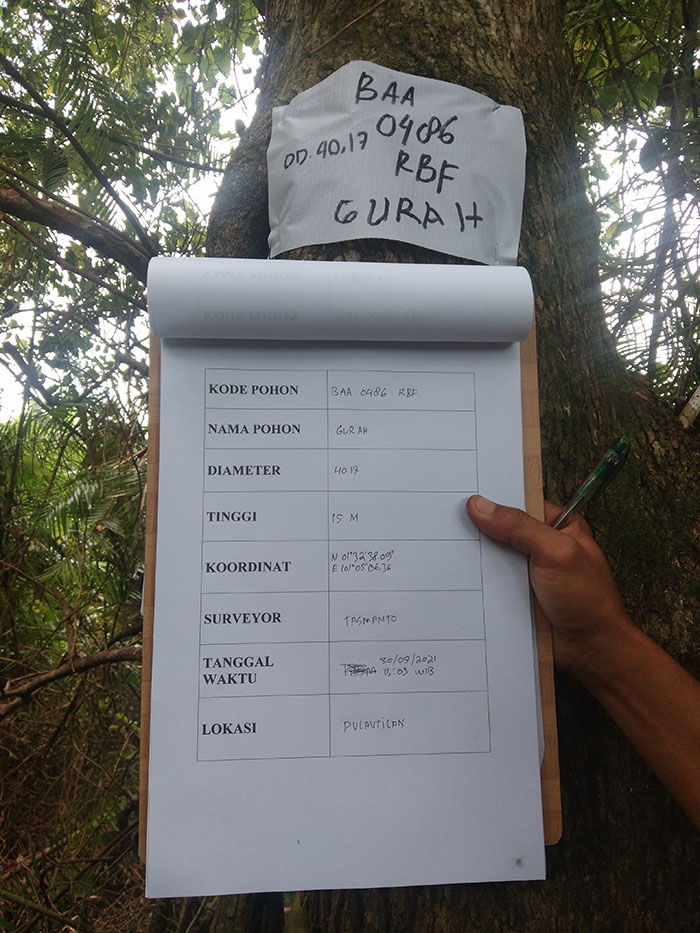 BAA
0486
DD. 40,17
RBF
GURAH
KODE POHON BAA 0486 RBF
NAMA POHON GURAH
DIAMETER 40.17
TINGGI 15 M
KOORDINAT N 01°32'38.09"
E 101°05'06,36
SURVEYOR TASMANTO
TANGGAL 30/09/2021
WAKTU 13:09 WIB
LOKASI